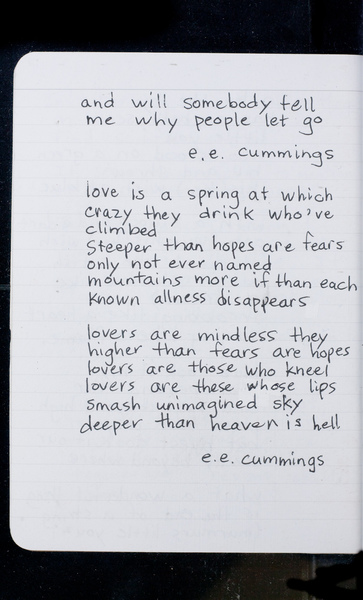 and will somebody tell
me why people let go
e.e. cummings
love is a spring at which
crazy they drink who've
climbed
steeper than hopes are fears
only not ever named
mountains more if than each
known allness disappears
lovers are mindless they
higher than fears are hopes
lovers are those who kneel
lovers are these whose lips
smash unimagined sky
deeper than heaven is hell
e.e. cummings